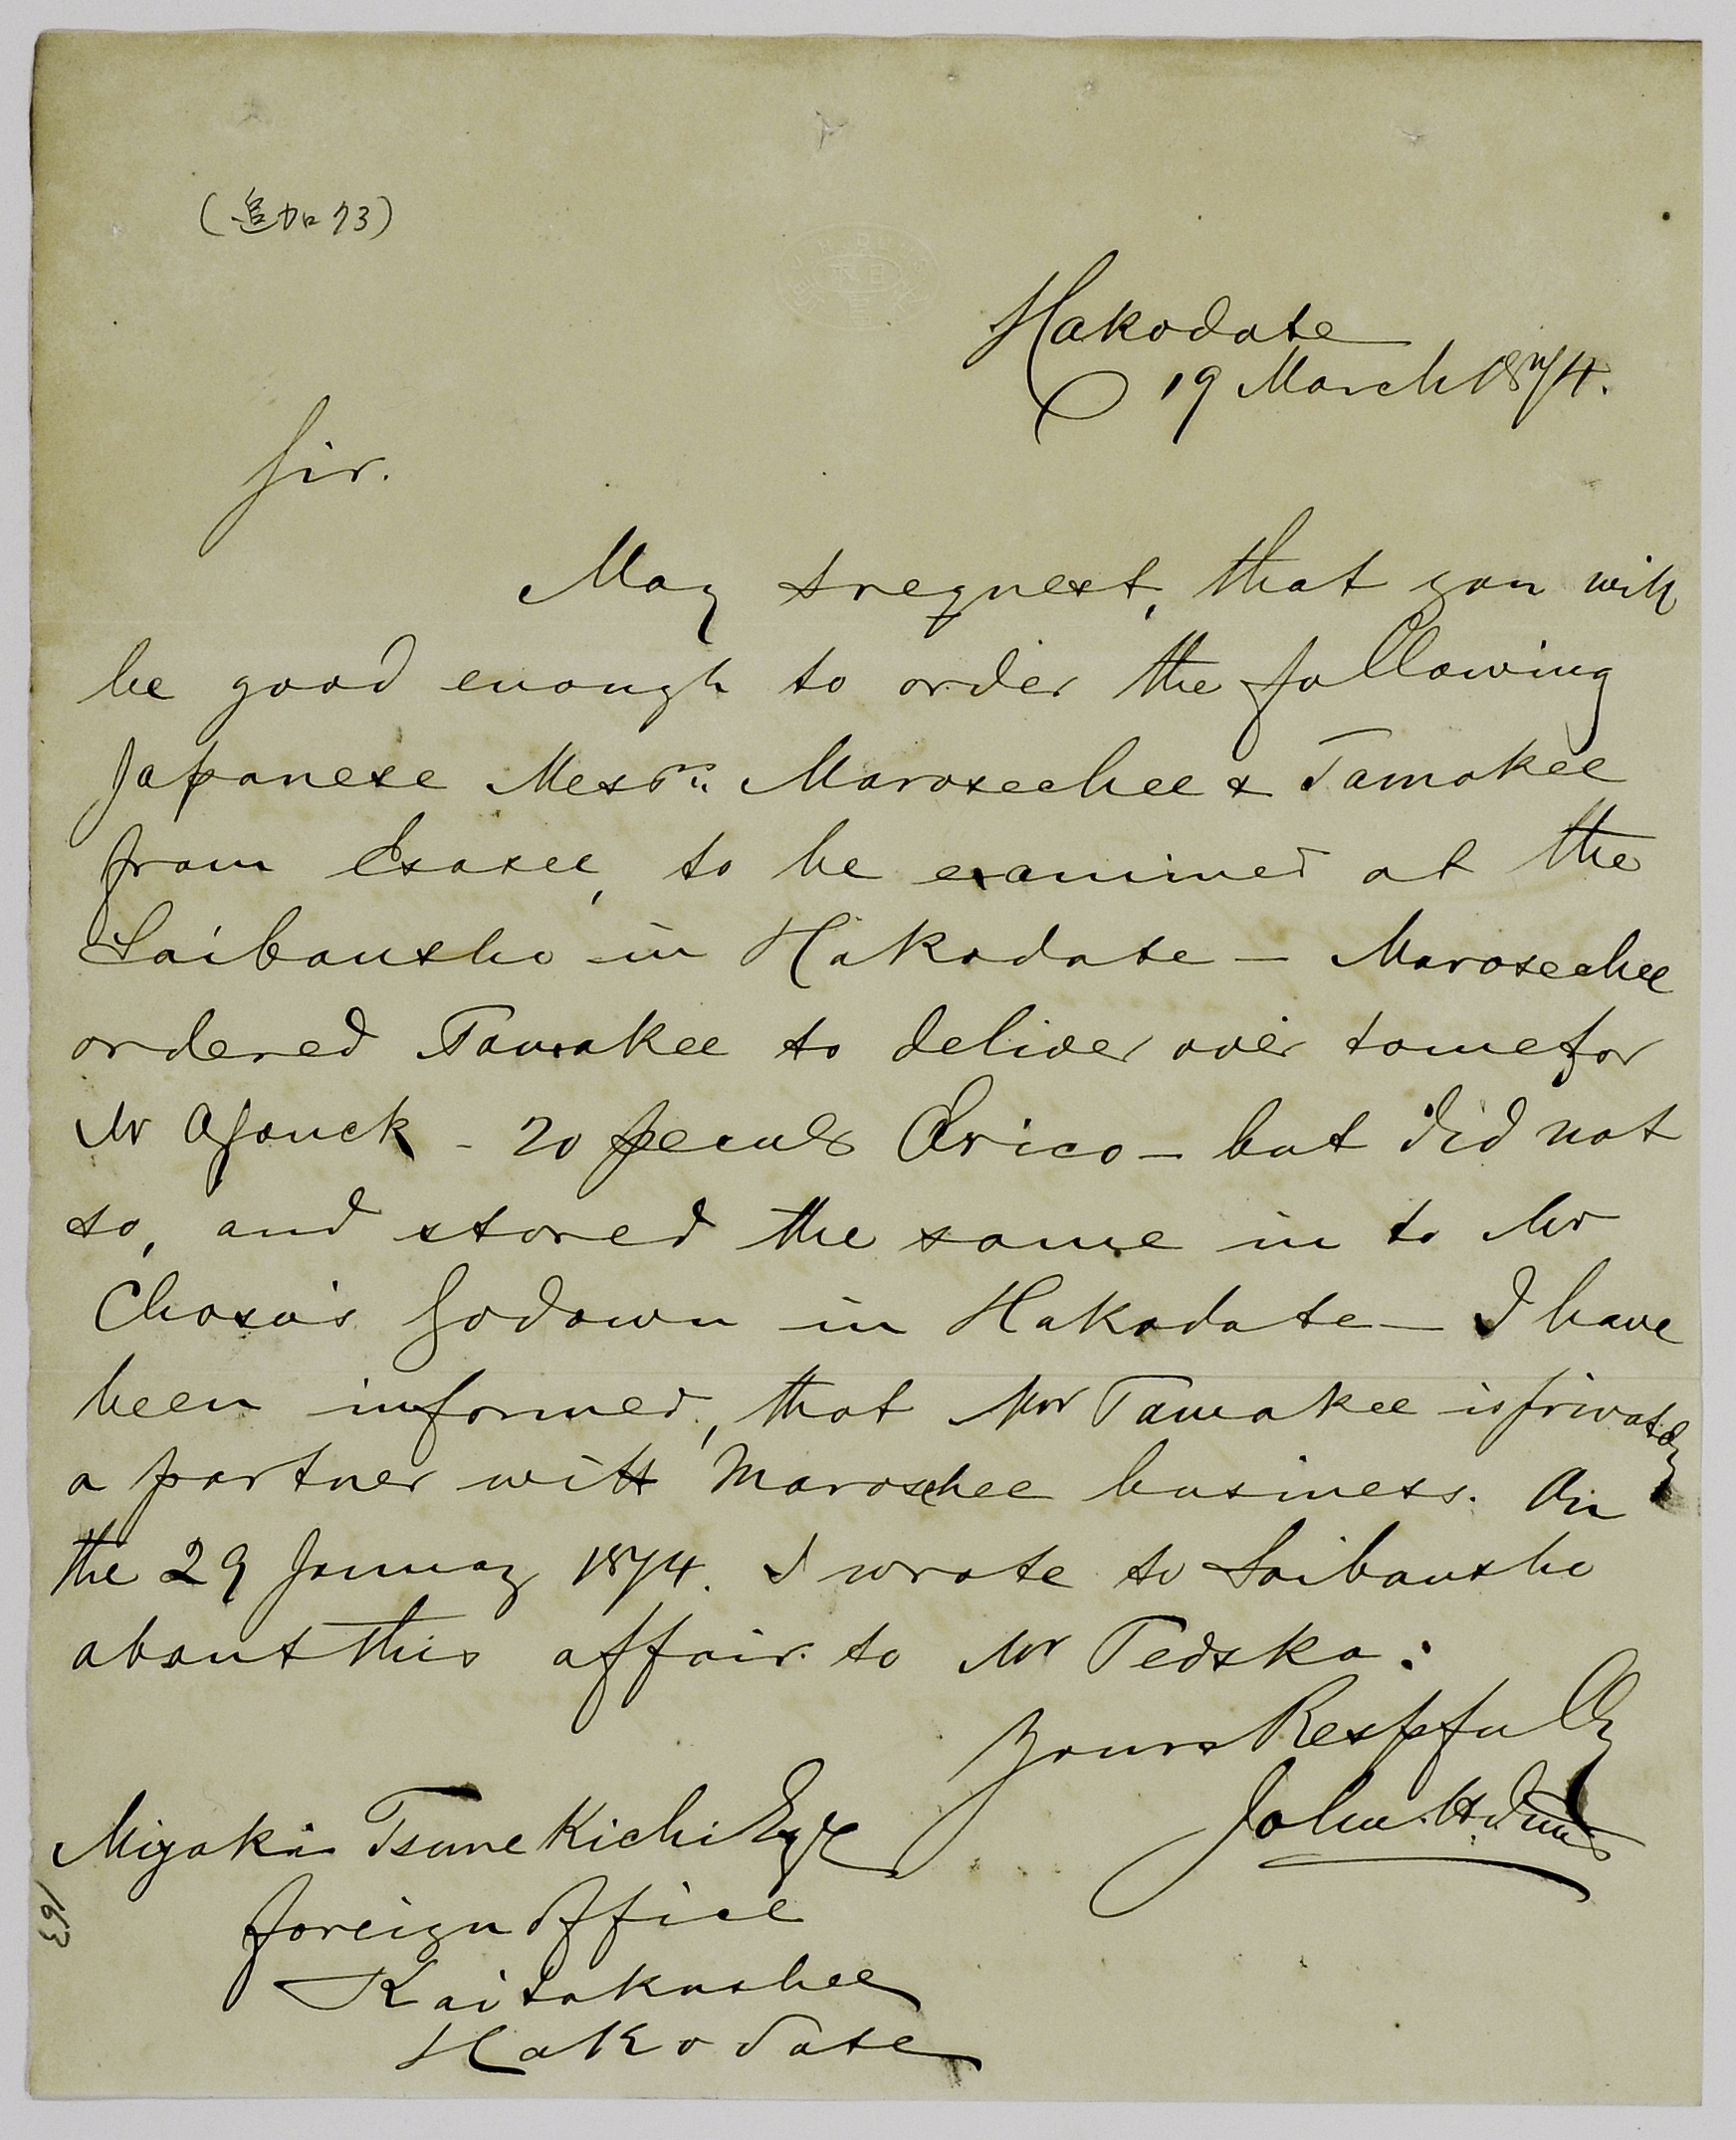 (追加73)
Hakodate
19 March 1874.
Sir.
May I request, that you will
be good enough to order the following
Japanese Messrs. Marosechee & Tamakee
from Esasee, to be examined at the
Saibansho in Hakodate — Marosechee
ordered Tamakee to deliver over to me for
Mr Afonck - 20 peculs Erico — but did not
so, and stored the same in to Mr
Chosa's Godown in Hakodate — I have
been informed, that Mr Tamakee is privately
a partner with Maroschee business. On
the 29 January 1874. I wrote to Saibansho
about this affair. to Mr Tedska:
Yours Respfully
John. H. Duus
Miyaki Tsune Kichi Esqre
Foreign Office
Kaitakushee
Hakodate
163